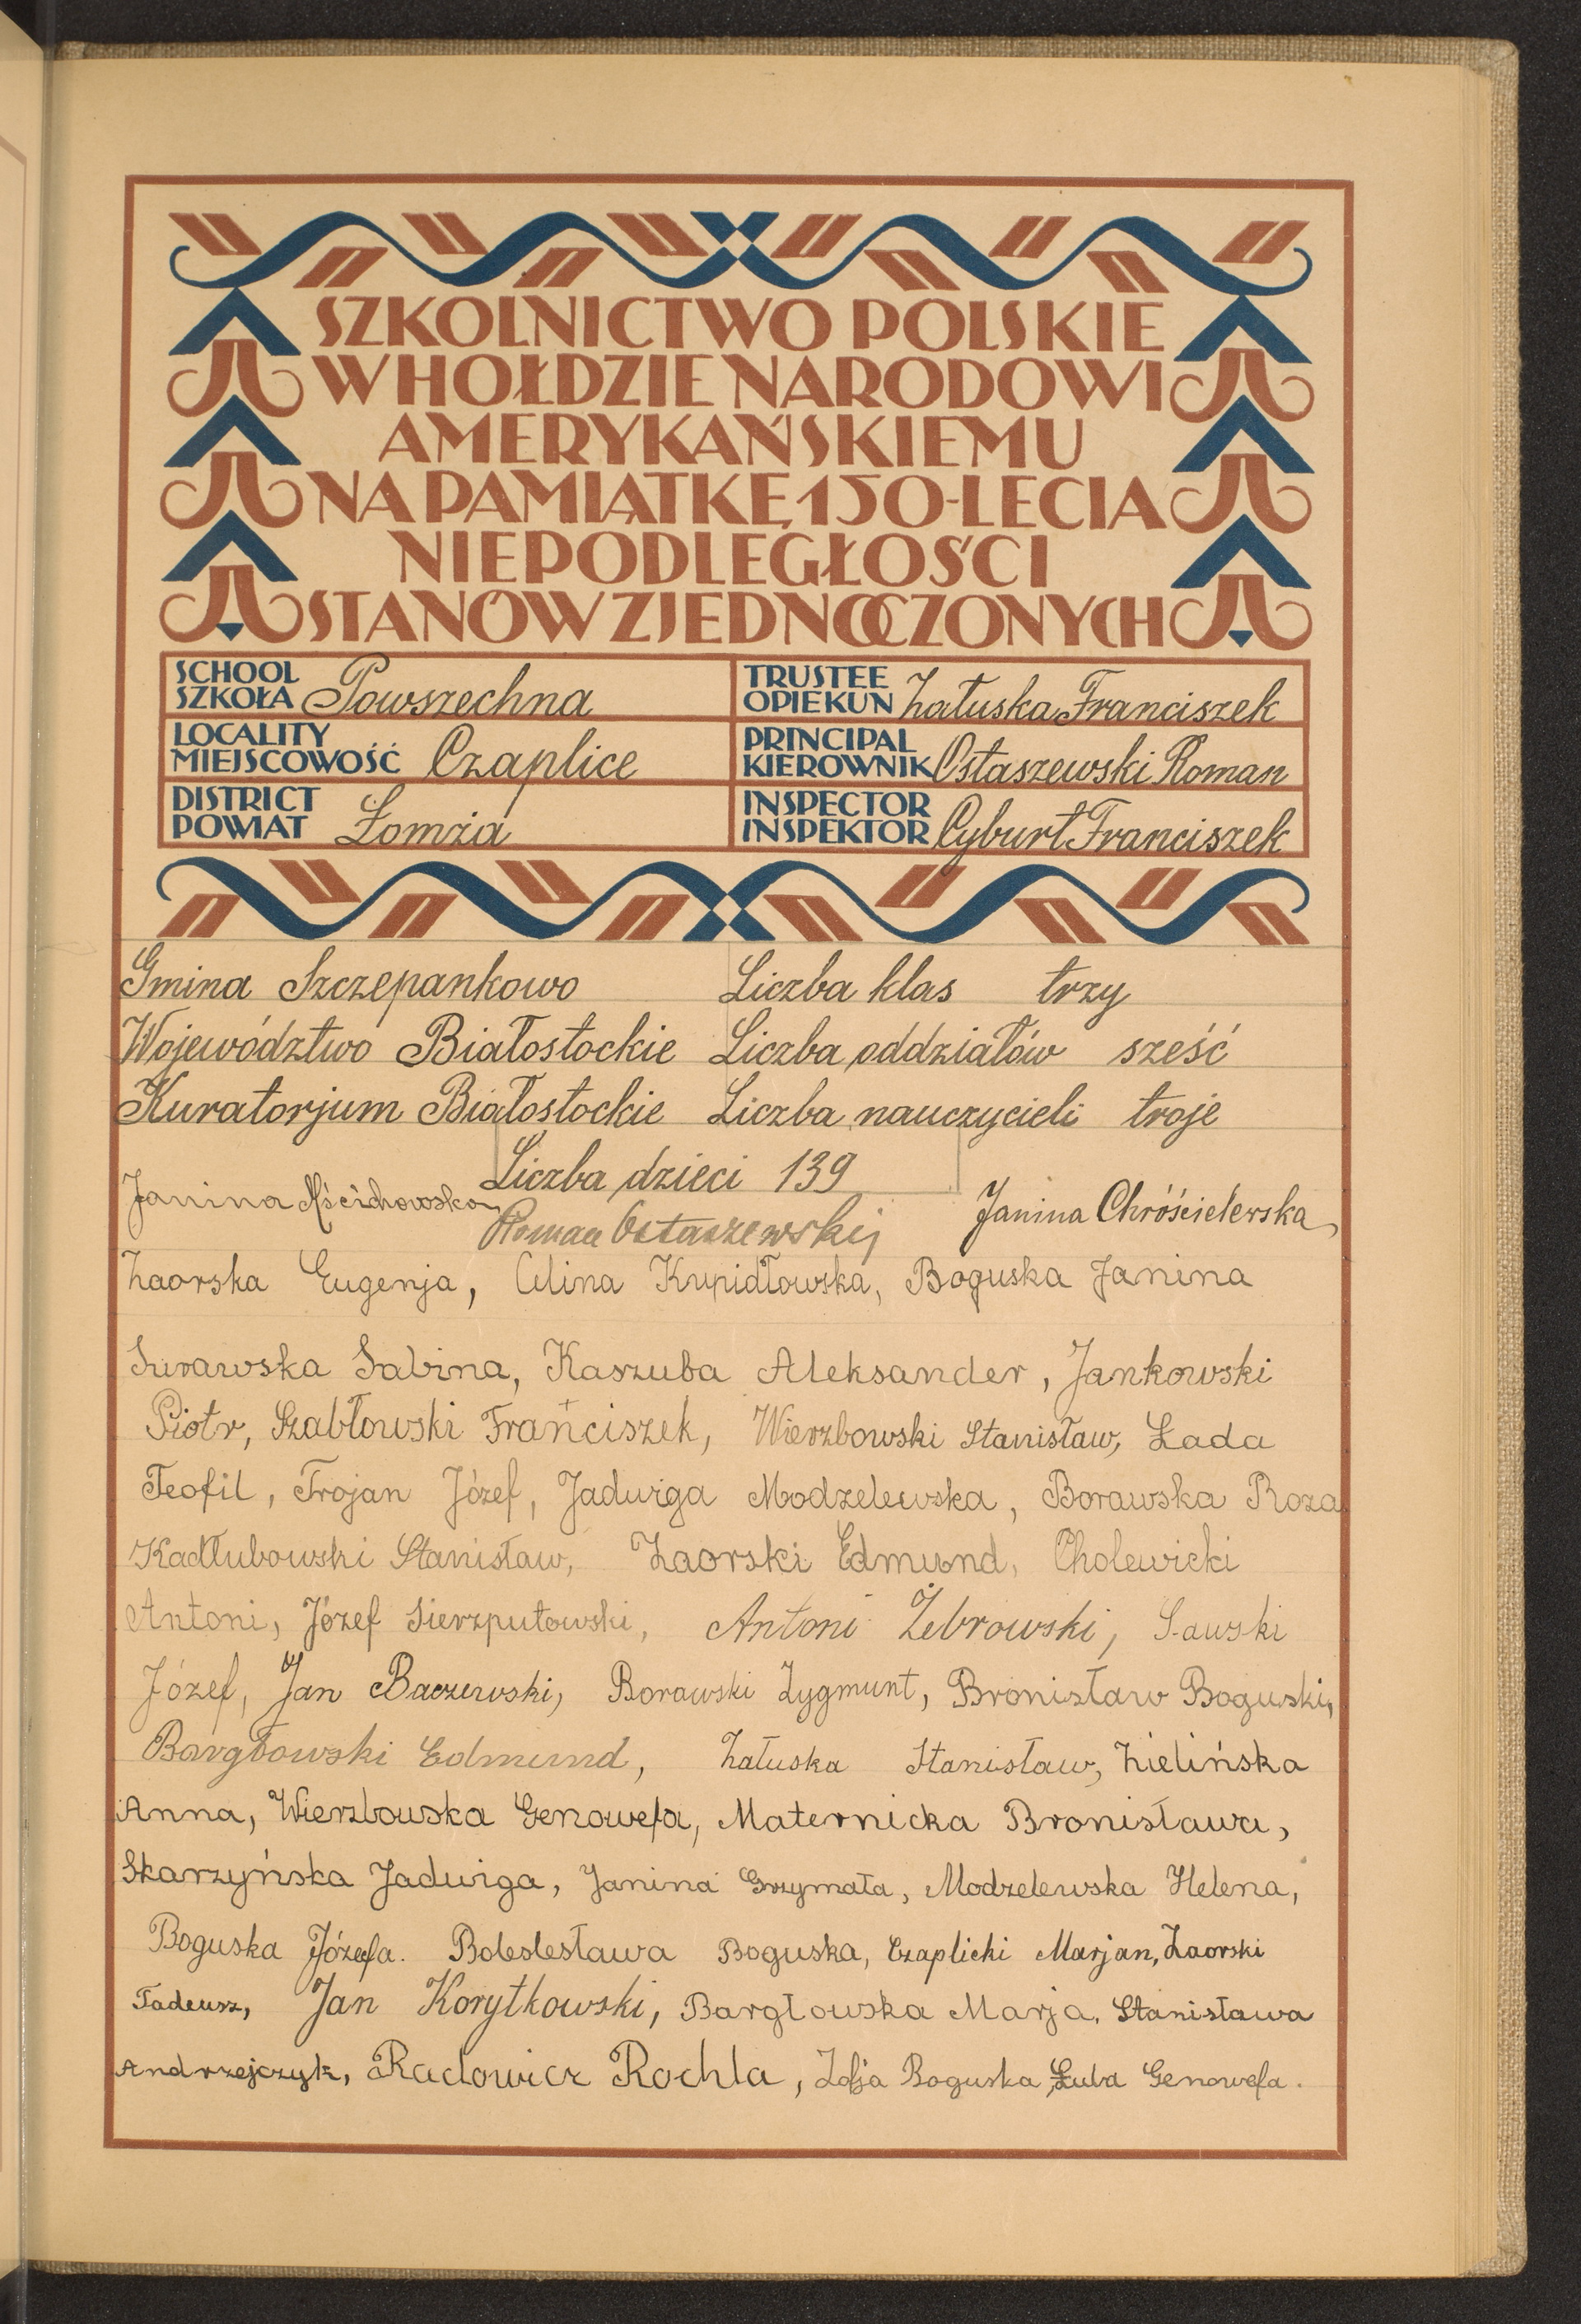 SZKOLNICTWO POLSKIE
W HOŁDZIE NARODOWI
AMERYKAŃSKIEMU
NA PAMIĄTKĘ 150-LECIA
NIEPODLEGŁOŚCI
STANÓW ZJEDNOCZONYCH
SCHOOL
SZKOŁA Powszechna
TRUSTEE
OPIEKUN Załuska Franciszek
LOCALITY
MIEJSCOWOŚĆ Czaplice
PRINCIPAL
KIEROWNIK Ostaszewski Roman
DISTRICT
POWIAT Łomża
INSPECTOR
INSPEKTOR Cyburt Franciszek
Gmina Szczepankowo Liczba klas trzy
Województwo Białostockie Liczba oddziałów sześć
Kuratorjum Białostockie Liczba nauczycieli troje
Liczba dzieci 139
Janina Mścichowska Roman Ostaszewski Janina Chróścielewska
Zaorska Eugenja, Celina Kupidłowska, Boguska Janina
Surawska Sabina, Kaszuba Aleksander, Jankowski
Piotr, Szabłowski Franciszek, Wierzbowski Stanisław, Łada
Teofil, Trojan Józef, Jadwiga Modzelewska, Borawska Roza
Kadłubowski Stanisław, Zaorski Edmund, Cholewicki
Antoni, Józef Sierzputowski, Antoni Żebrowski,
Józef, Jan Baczewski, Borawski Zygmunt, Bronisław Boguski,
Bargłowski Edmund, Załuska Stanisław, Zielińska
Anna, Wierzbowska Genowefa, Maternicka Bronisława,
Skarzyńska Jadwiga, Janina Grzymała, Modzelewska Helena,
Boguska Józefa. Boleslesława Boguska, Czaplicki Marjan, Zaorski
Tadeusz, Jan Korytkowski, Bargłowska Marja, Stanisława
Andrzejczyk, Radowicz Rochla, Zofja Boguska, Łuba Genowefa.